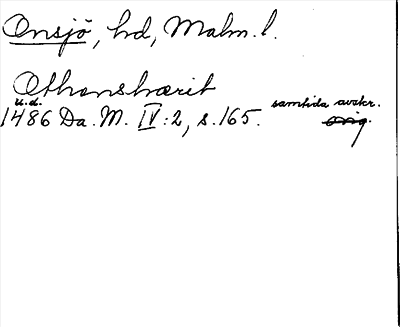 Onsjö, hd, Malm. l.
Othenshærit
u.d. samtida avskr.
1486 Da. M. IV:2, s. 165. orig.